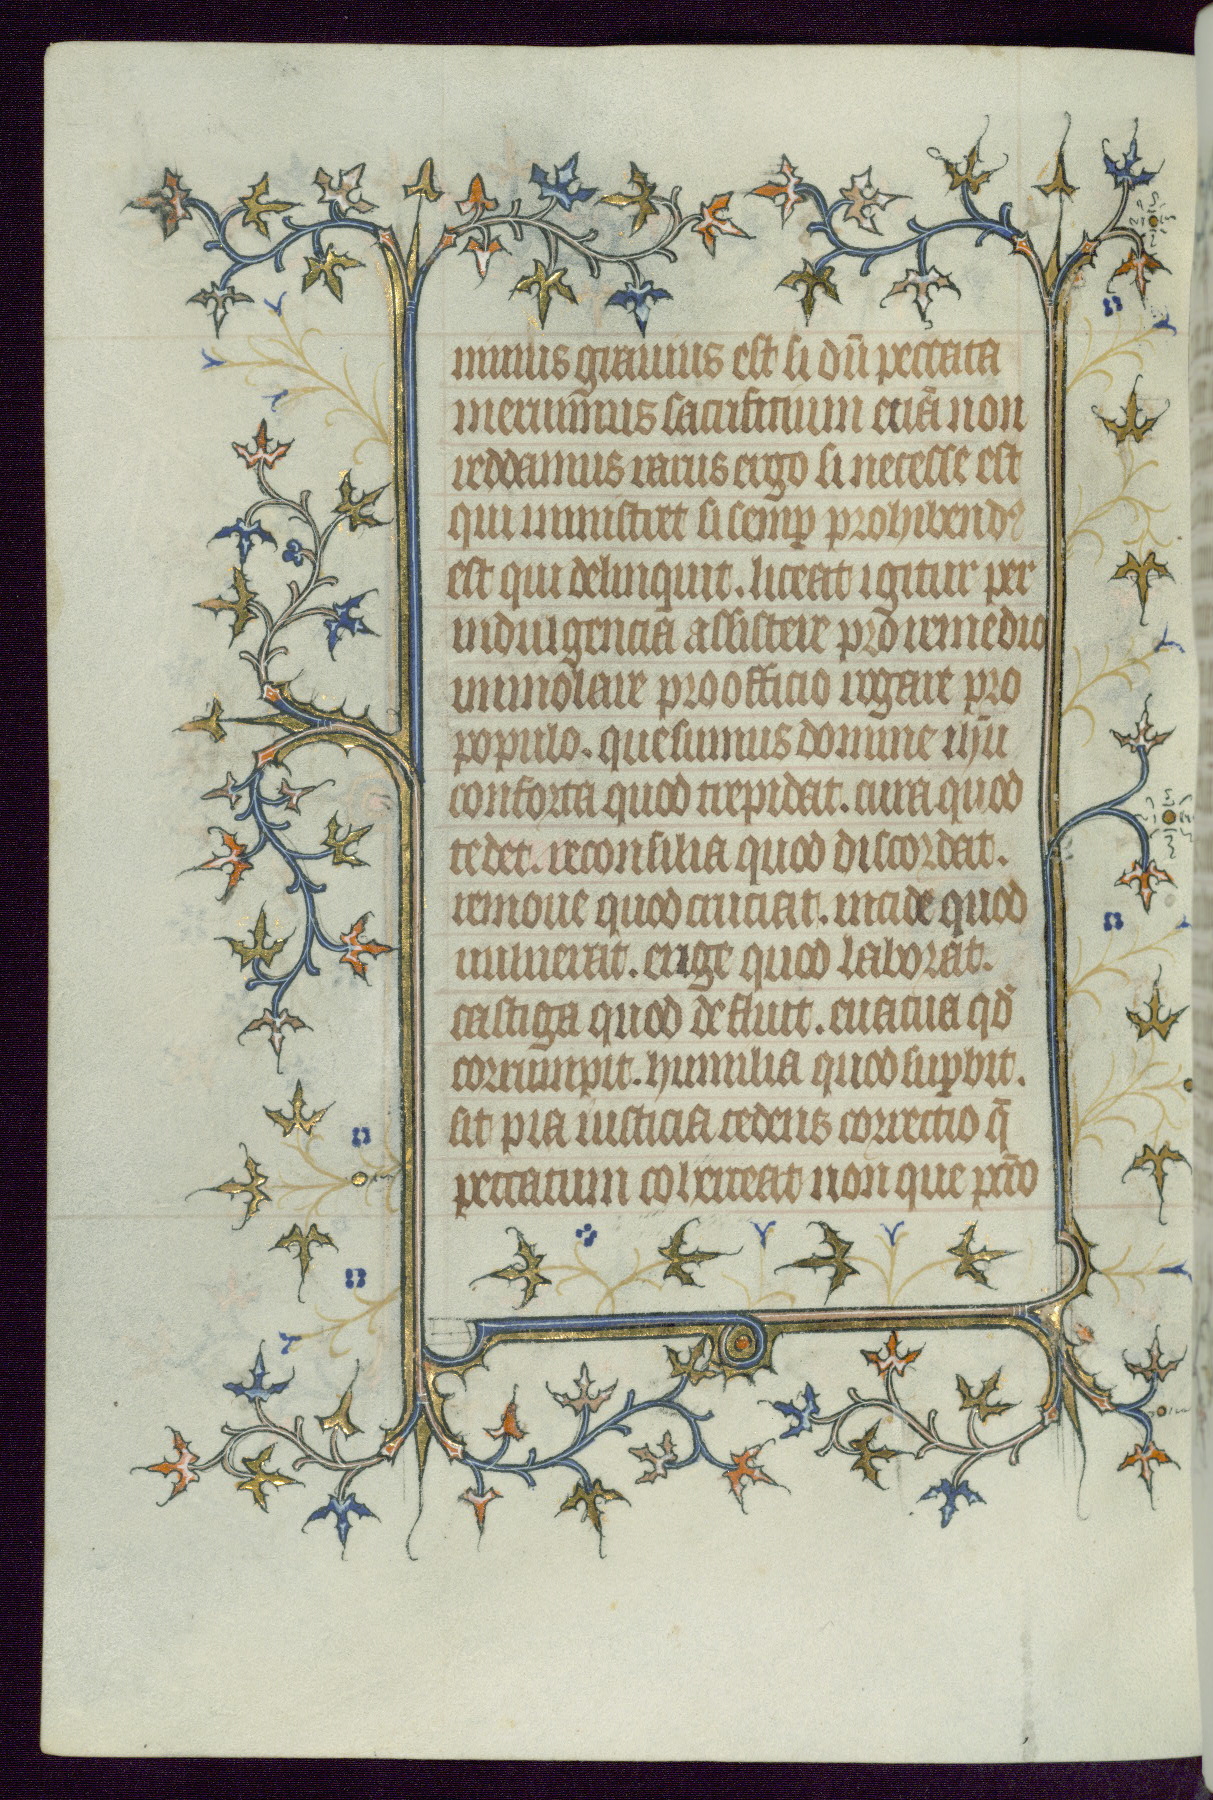 minus grauius est si dū peccata
meruim̄us sacrificium etiā non
reddamus rarus ergo si necesse est
qui ministret si semꝑ prohibendꝰ
est qui delinquit. liceat igitur per
indulgenciā assistere pro remedio
immolare pro officio rogare pro
populo. quesumus domine ihū
conforta quod trepidat. cura quod
tedet. reconsilia quod discordat.
remoue quod cruciat. incide quod
uulnerat. erige quod laborat.
castiga quod defluit. euacua qd̄
corrumpit. humilia quod suꝑbit.
sit pia iusticia cedens correctio q̄
peccatum coherceat non que pctō